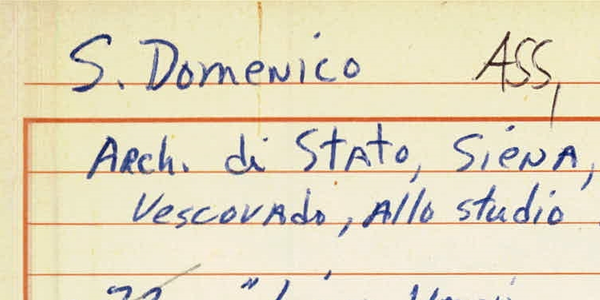 S. Domenico ASS,
Arch. di Stato, Siena,
Vescovado, Allo studio